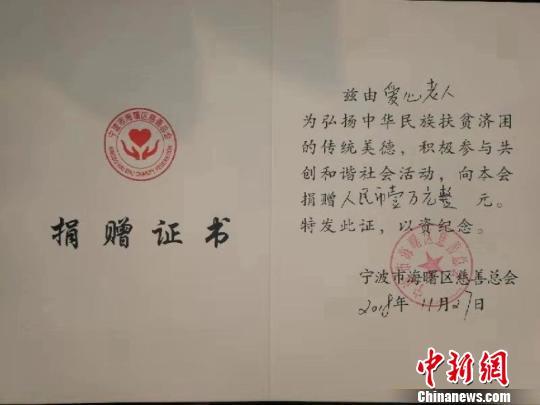 宁波市海曙区慈善总会
NINGBO HAI SHU CHARITY FEDERATION
捐赠证书
兹由爱心老人
为弘扬中华民族扶贫济困
的传统美德，积极参与共
创和谐社会活动，向本会
捐赠人民币壹万元整 元。
特发此证，以资纪念。
宁波市海曙区慈善总会
宁波市海曙区慈善总会
2018年11月27日
中新网
Chinanews.com